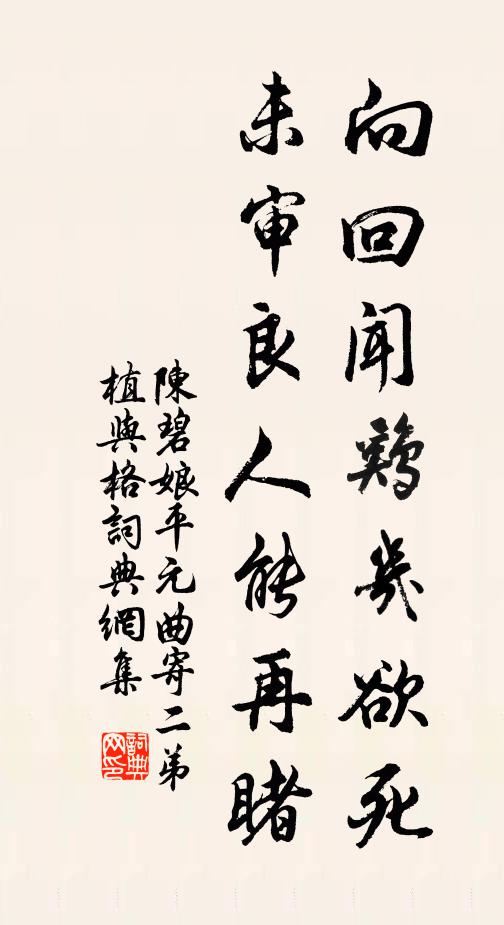 向回聞鷄幾欲死
未审良人能再睹
陳碧娘平元曲寄二弟
植與格詞典網集
詞典网印